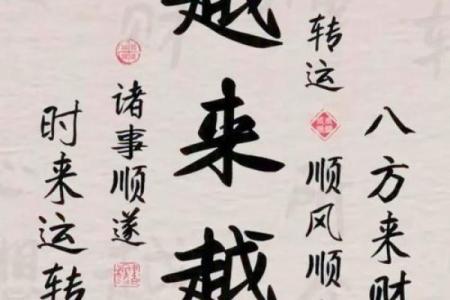 八方来财
转运
顺风顺
越来越
诸事顺遂
时来运转